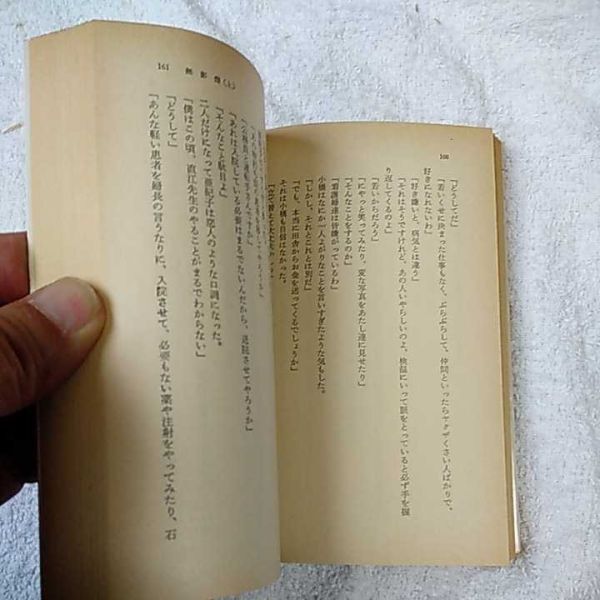 160
「どうしてだ」
「若いくせに決まった仕事もなく、ぶらぶらして、仲間といったらヤクザくさい人ばかりで、
好きになれないわ」
「好き嫌いと、病気とは違う」
「それはそうですけれど、あの人いやらしいのよ、検温にいって脈をとっていると必ず手を握
り返してくるのよ」
「若いからだろう」
「にやっと笑ってみたり、変な写真をあたし達に見せたり」
「そんなことをするのか」
「看護婦達は皆嫌がっているわ」
小橋はなにか一人よがりなことを言いすぎたような気もした。
「しかし、それとこれとは別だ」
「でも、本当に田舎からお金を送ってくるでしょうか」
それは小橋も自信はなかった。
161 無影燈(上)
「あれは入院している必要はまるでないんだから、退院させてやろうか」
「そんなこと駄目よ」
二人だけになって亜紀子は恋人のような口調になった。
「僕はこの頃、直江先生のやることがまるでわからない」
「どうして」
「あんな軽い患者を婦長の言うなりに、入院させて、必要もない薬や注射をやってみたり、石